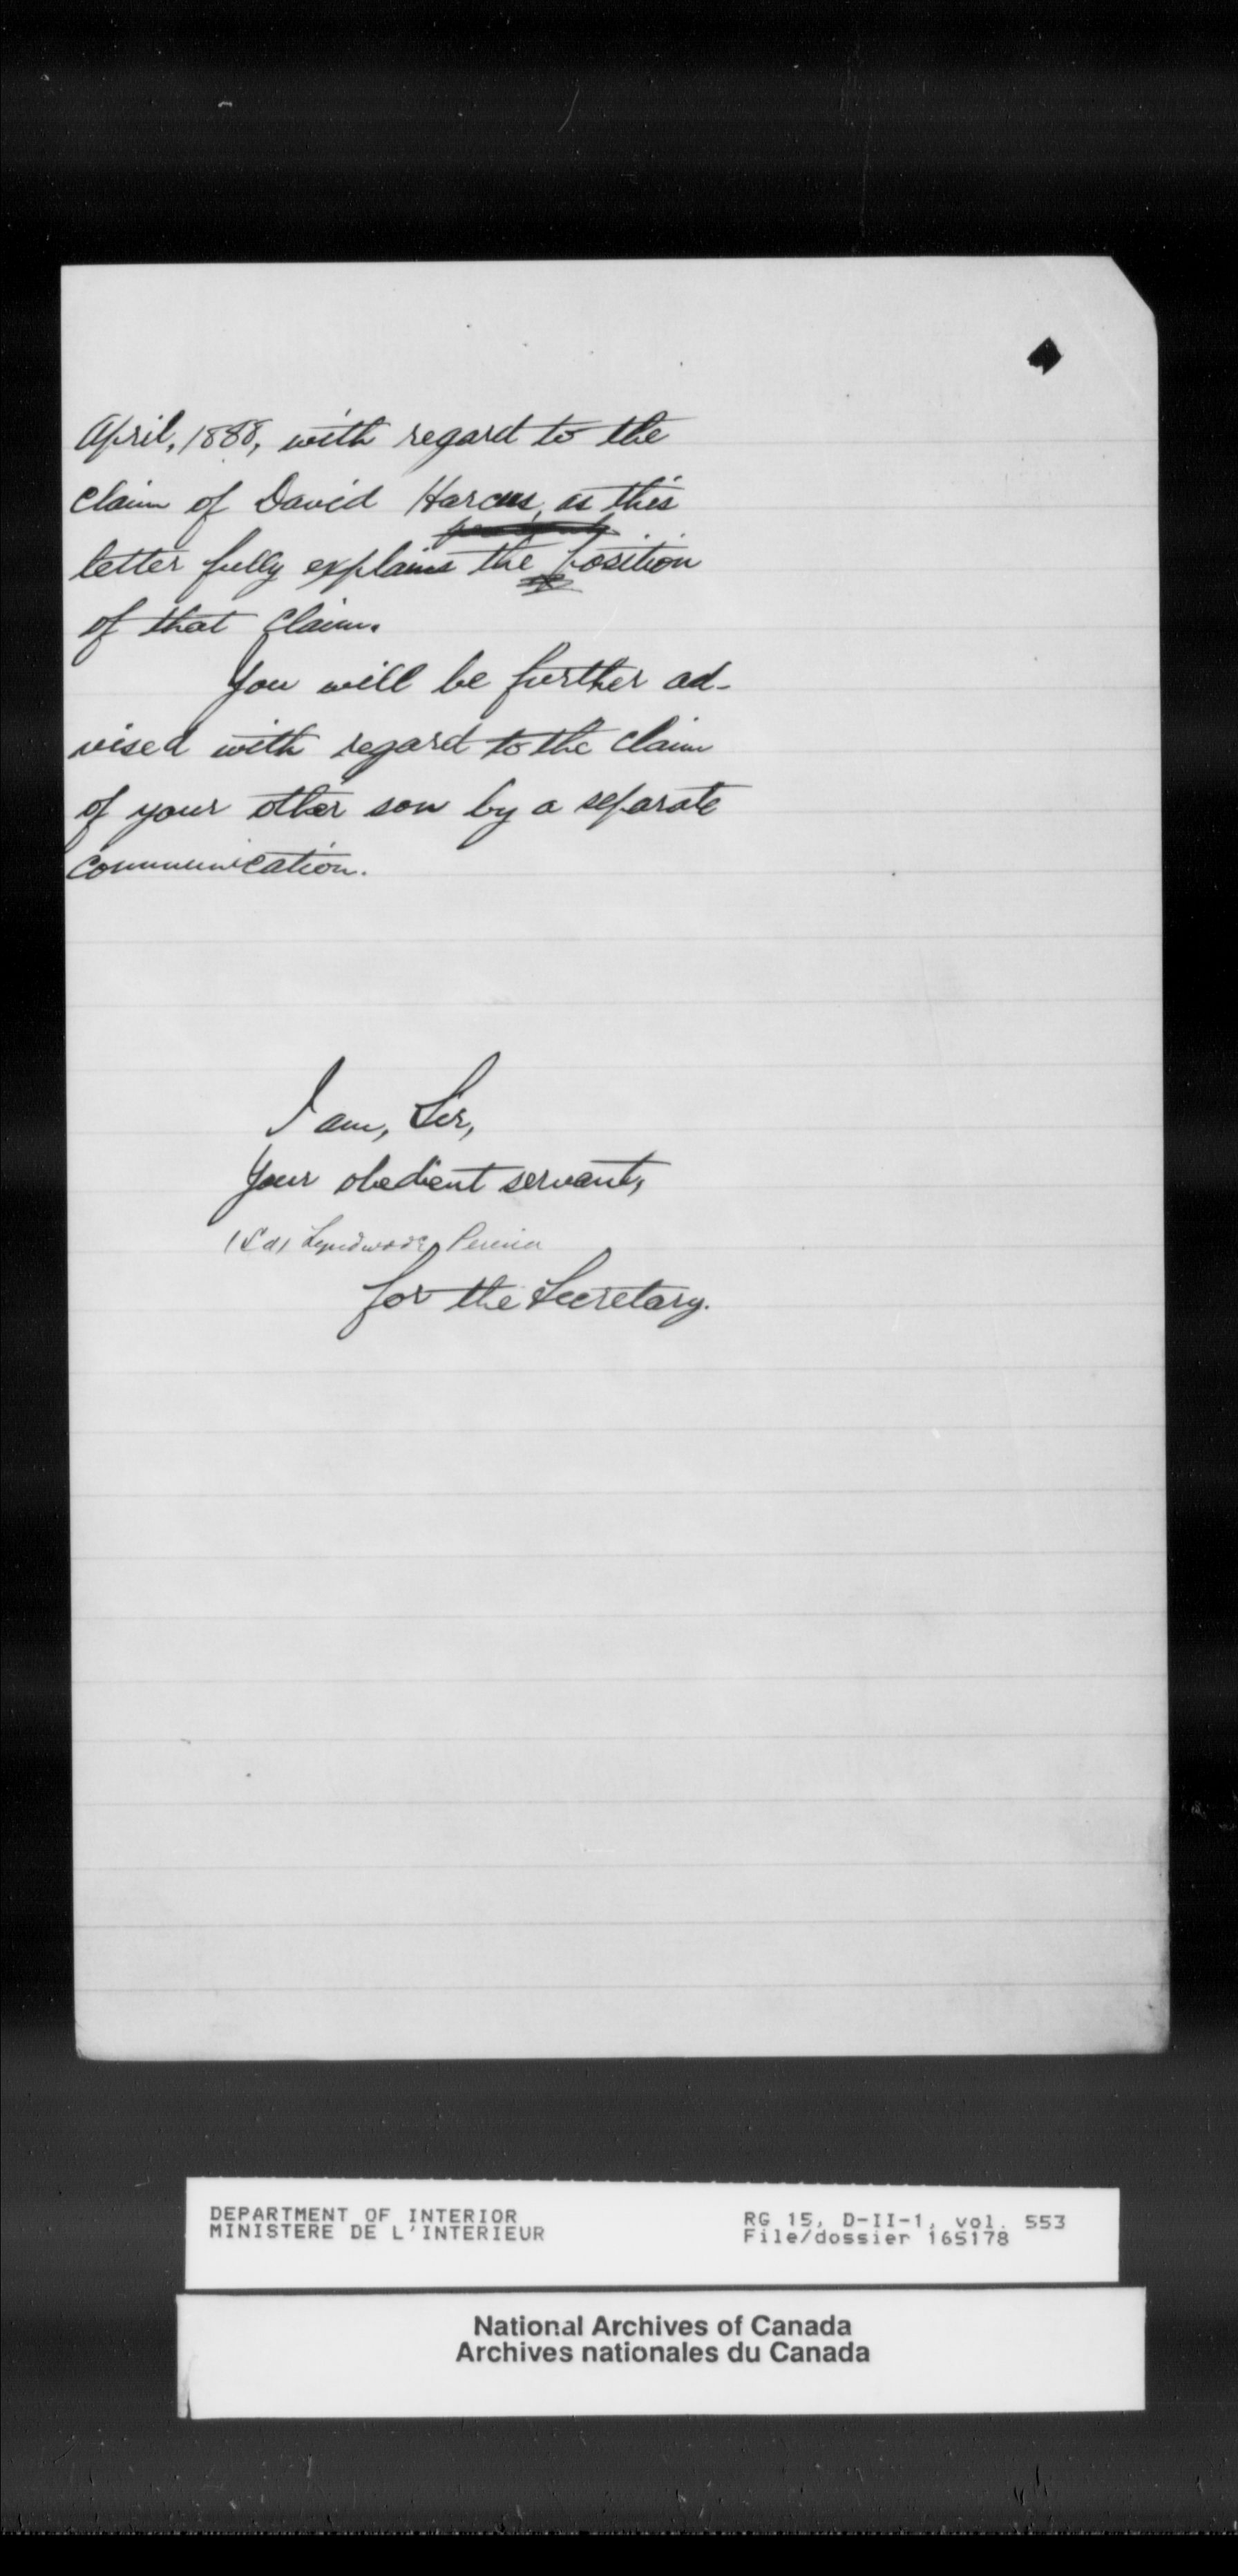 April, 1888, with regard to the
claim of David Harcus, as this
letter fully explains the position
of that claim.
You will be further ad-
vised with regard to the claim
of your other son by a separate
communication.
I am, Sir,
Your obedient servant,
(Sd) Lyndwode Pereira
for the Secretary.
DEPARTMENT OF INTERIOR
MINISTERE DE L'INTERIEUR
RG 15, D-II-1, vol. 553
File/dossier 165178
National Archives of Canada
Archives nationales du Canada